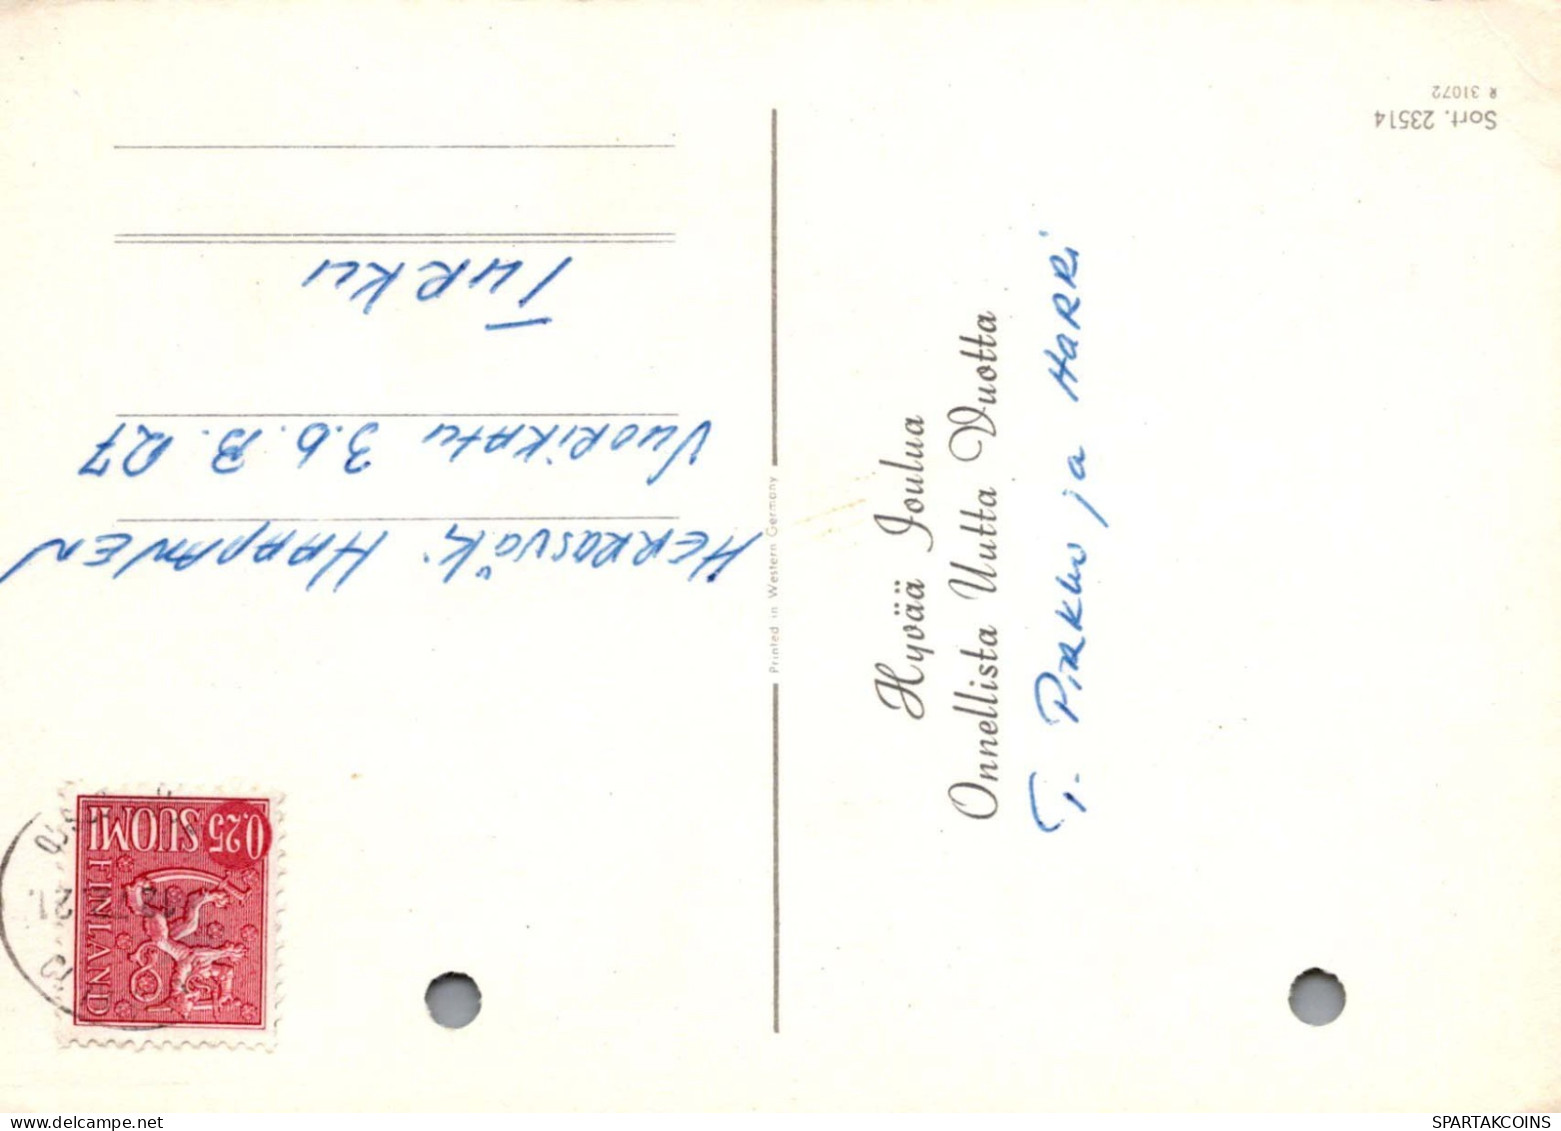 Sort. 23514
R 31072
Hyvää Joulua
Onnellista Uutta Vuotta
T. Pirkko ja Harri
Printed in Western Germany
0.25 SUOMI
FINLAND
Herrasväki Haapanen
Vuorikatu 3.b.B.27
Turku
SPARTAKCOINS